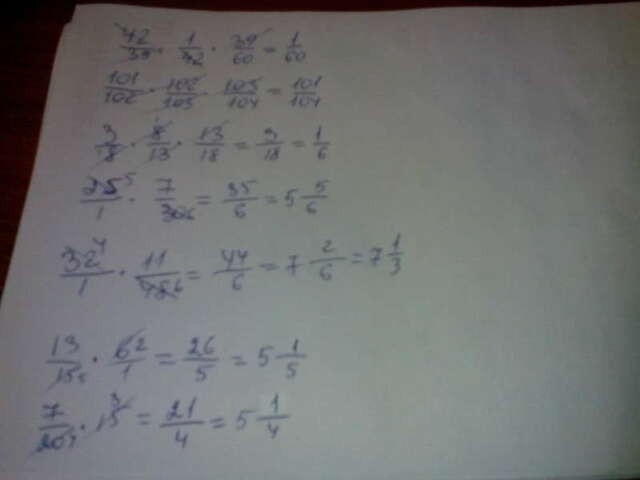 42/39 · 1/42 · 39/60 = 1/60
101/102 · 102/103 · 103/104 = 101/104
3/8 · 8/13 · 13/18 = 3/18 = 1/6
25⁵/1 · 7/30₆ = 35/6 = 5 5/6
32⁴/1 · 11/48₆ = 44/6 = 7 2/6 = 7 1/3
13/15₅ · 6²/1 = 26/5 = 5 1/5
7/20₄ · 15³ = 21/4 = 5 1/4